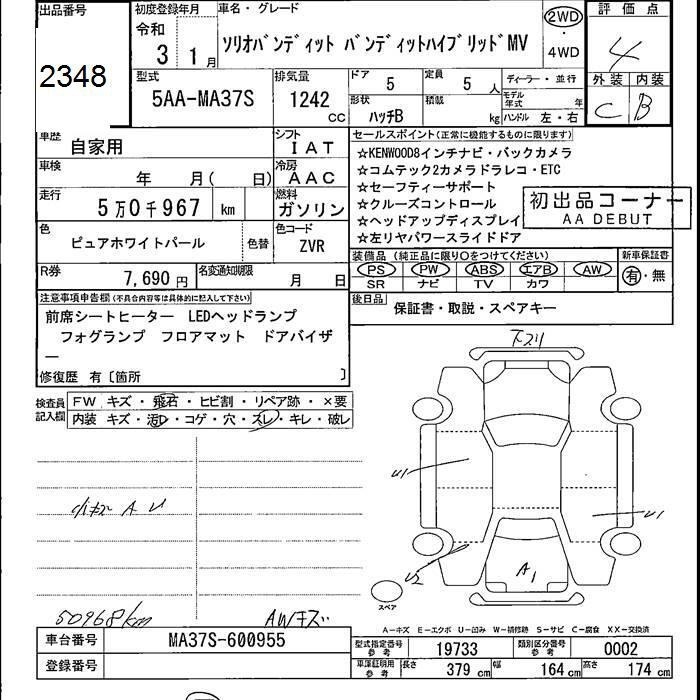 出品番号
2348
初度登録年月
令和
3 1月
車名・グレード
ソリオバンディット バンディットハイブリッドMV
2WD
・
4WD
評価点
4
外装 内装
C B
型式
5AA-MA37S
排気量
1242 CC
ドア
5
定員
5 人
形状
ハッチB
積載
kg
ディーラー・並行
モデル年式 年
ハンドル 左・右
車歴
自家用
シフト
IAT
車検
年 月( 日)
冷房
AAC
走行
5万0千967 km
燃料
ガソリン
色
ピュアホワイトパール
色替
色コード
ZVR
R券
7,690円
名変通知期限
月 日
セールスポイント(正常に機能するものに限ります)
☆KENWOOD8インチナビ・バックカメラ
☆コムテック2カメラドラレコ・ETC
☆セーフティーサポート
☆クルーズコントロール
☆ヘッドアップディスプレイ
☆左リヤパワースライドドア
初出品コーナー
AA DEBUT
装備品(純正品に限り○をつけてください)
PS PW ABS エアB AW
SR ナビ TV カワ
新車保証書
有・無
後日品
保証書・取説・スペアキー
注意事項申告欄(不具合内容等は具体的に記入して下さい)
前席シートヒーター LEDヘッドランプ
フォグランプ フロアマット ドアバイザ
ー
修復歴 有〔箇所 〕
検査員記入欄
FW キズ・飛石・ヒビ割・リペア跡・×要
内装 キズ・汚レ・コゲ・穴・スレ・キレ・破レ
小キズ A U
50968km
AWキズ
下スリ
U1
U1
U2
A1
スペア
A-キズ E-エクボ U-凹み W-補修跡 S-サビ C-腐食 XX-交換済
車台番号
MA37S-600955
登録番号
型式指定番号 参考
19733
類別区分番号 参考
0002
車庫証明用 参考
長さ 379 cm 幅 164 cm 高さ 174 cm